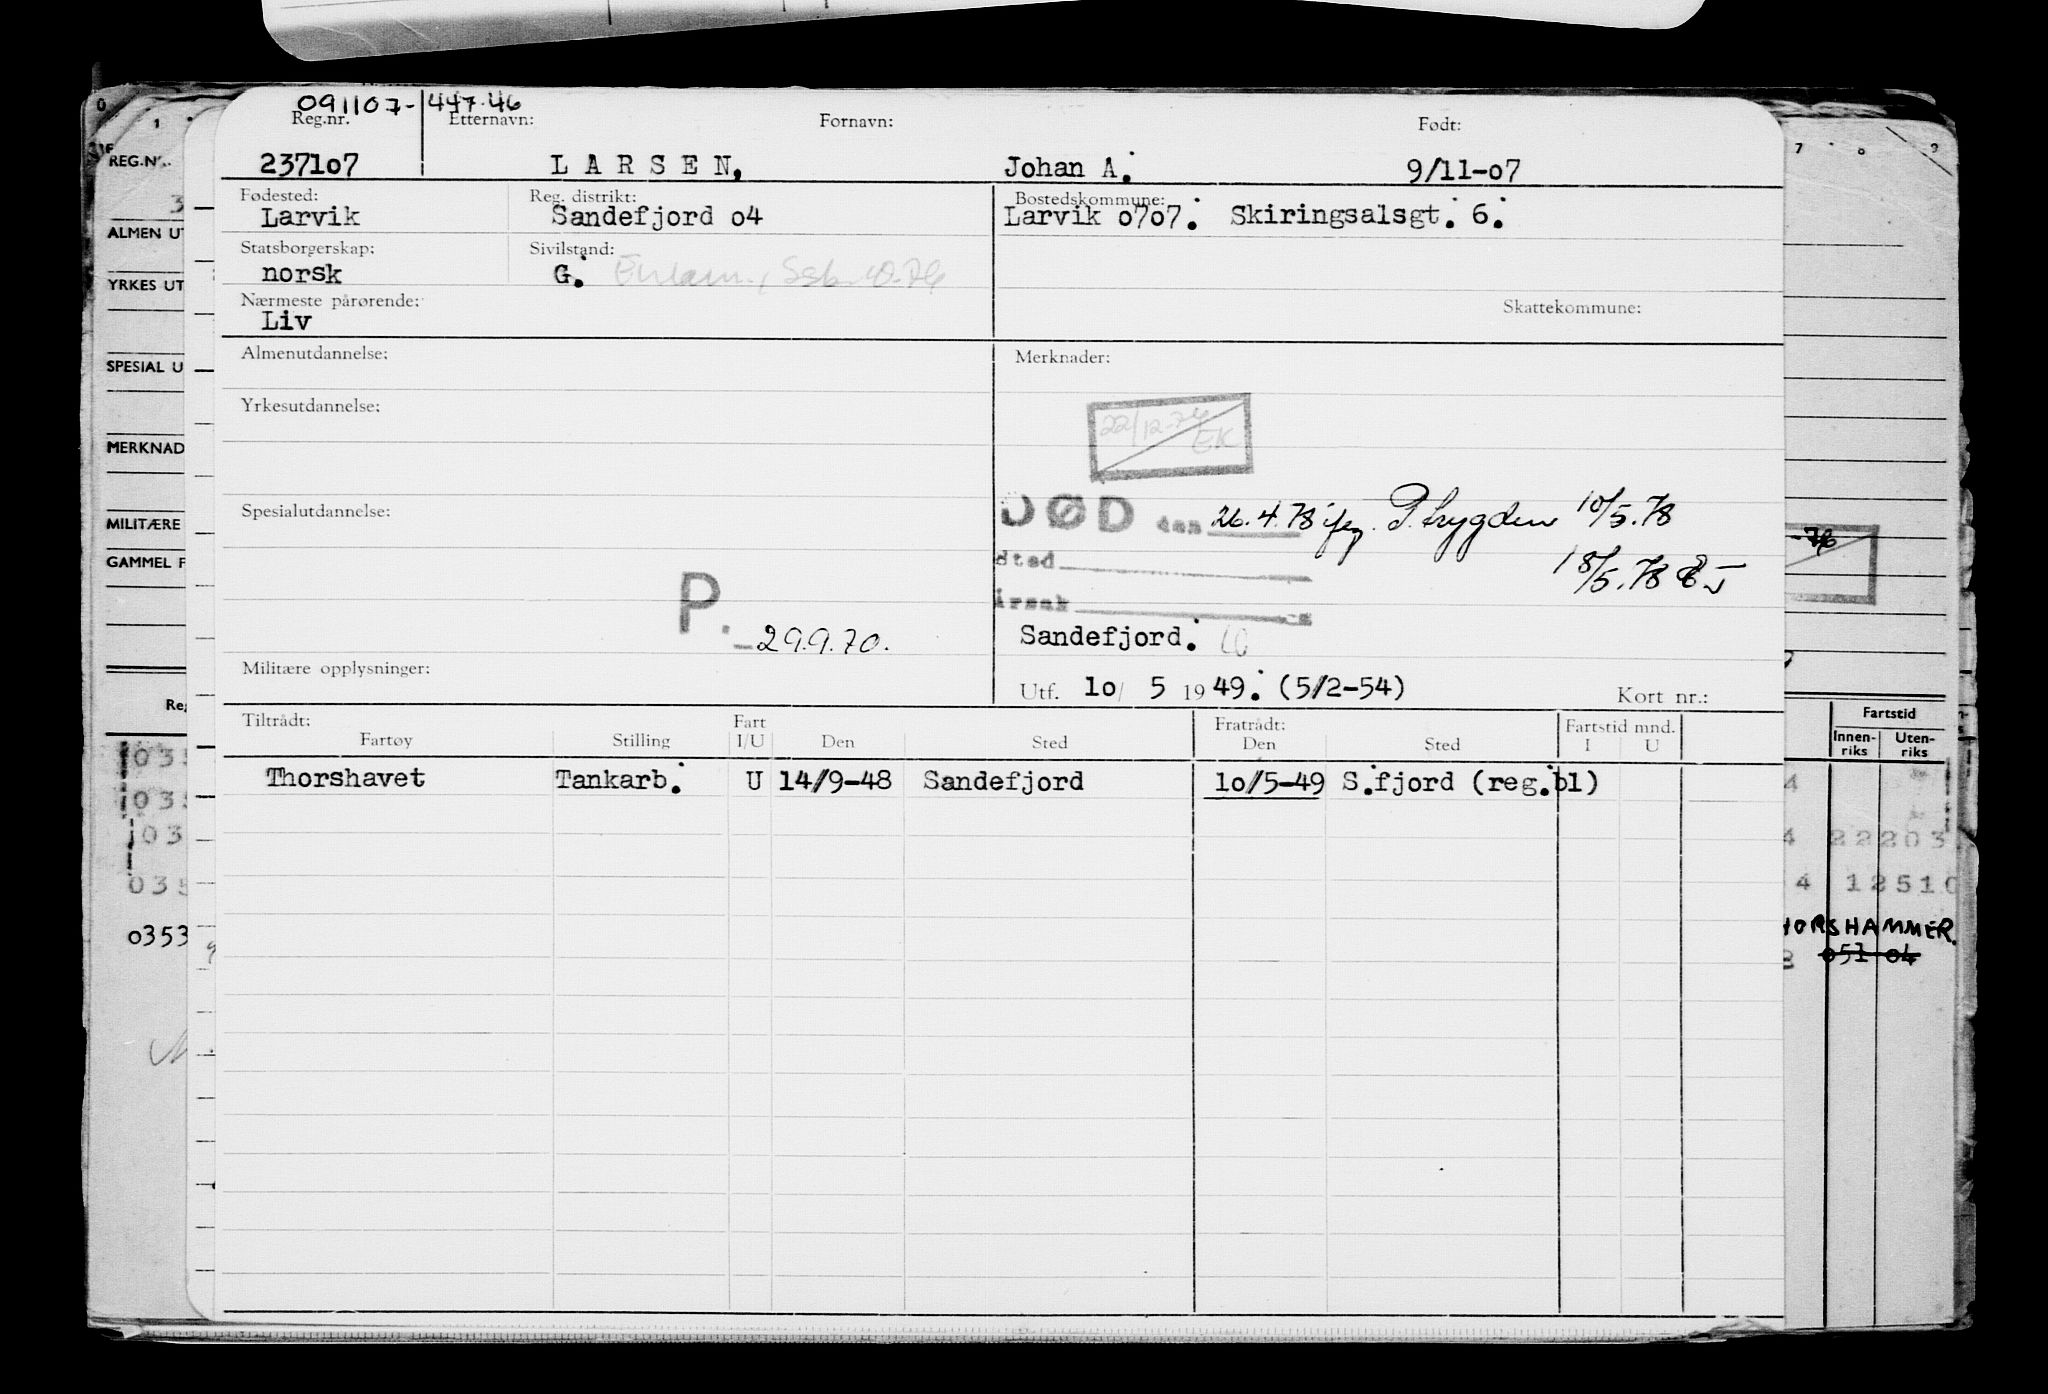 091107-447.46
Reg.nr. Etternavn: Fornavn: Født:
2371o7 L A R S E N, Johan A. 9/11-o7
Fødested: Reg. distrikt: Bostedskommune:
Larvik Sandefjord o4 Larvik o7o7. Skiringsalsgt. 6.
Statsborgerskap: Sivilstand:
norsk G.
Nærmeste pårørende: Skattekommune:
Liv
Almenutdannelse: Merknader:
Yrkesutdannelse:
22/12-76 EK
Spesialutdannelse:
DØD den 26.4.78 iføg. P. trygden 10/5.78
sted
18/5.78
årsak
P. 29.9.70.
Sandefjord.
Militære opplysninger:
Utf. 1o/ 5 1949. (5/2-54) Kort nr.:
Tiltrådt: Fart Fratrådt: Fartstid mnd.
Fartøy Stilling I/U Den Sted Den Sted I U
Thorshavet Tankarb. U 14/9-48 Sandefjord 1o/5-49 S.fjord (reg.bl)
REG.NR.
ALMEN UT
YRKES UT
SPESIAL U
MERKNAD
MILITÆRE
GAMMEL F
Reg
035
035
03
035
0353
7 8 9
-76
Fartstid
Innen-riks Uten-riks
4
4 22203
4 12510
HORSHAMMER.
051 04